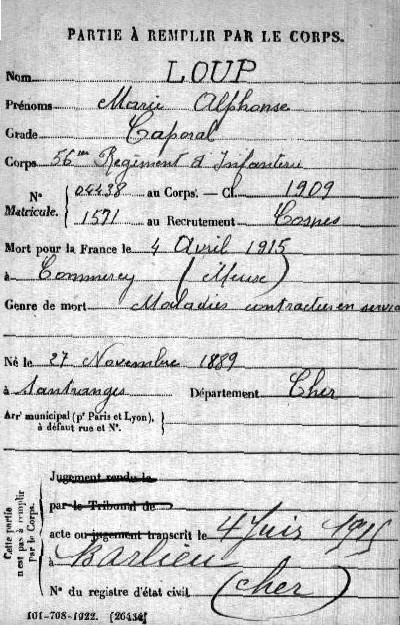 PARTIE À REMPLIR PAR LE CORPS.
Nom LOUP
Prénoms Marie Alphonse
Grade Caporal
Corps 56me Regiment d'Infanterie
N° Matricule. 04438 au Corps. — Cl. 1909
1571 au Recrutement Cosnes
Mort pour la France le 4 Avril 1915
à Commercy (Meuse)
Genre de mort Maladies contractées en service
Né le 27 Novembre 1889
à Santranges Département Cher
Arrt municipal (pr Paris et Lyon), à défaut rue et N°.
Cette partie n'est pas à remplir par le Corps.
Jugement rendu le
par le Tribunal de
acte ou jugement transcrit le 4 Juin 1915
à Barlieu
(Cher)
N° du registre d'état civil
101-708-1922. [26434]